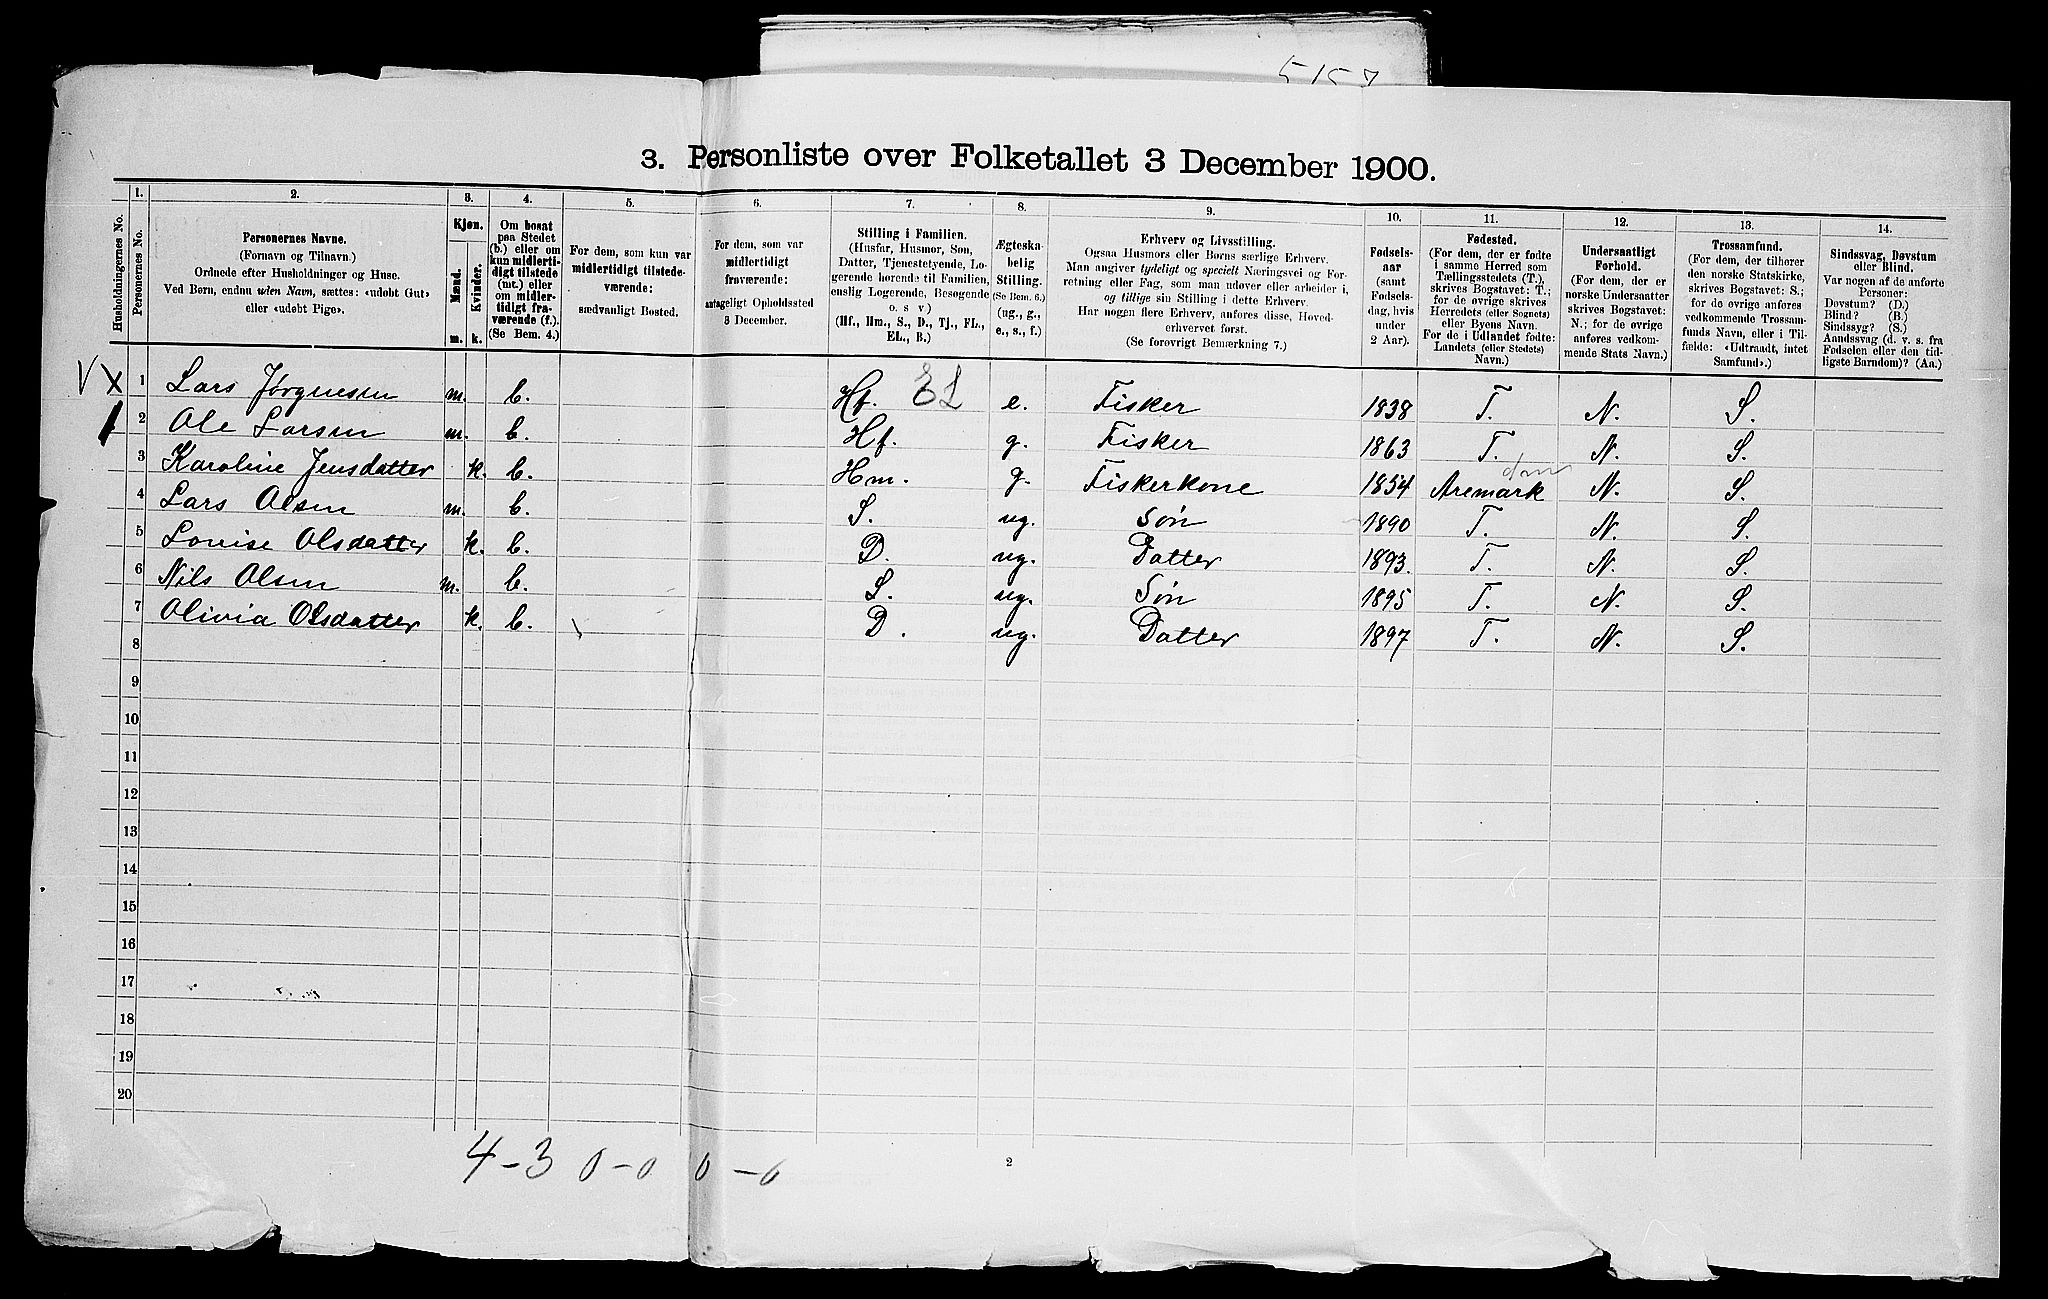 5157
3. Personliste over Folketallet 3 December 1900.
Husholdningernes No.
1.
Personernes No.
2.
Personernes Navne.
(Fornavn og Tilnavn.)
Ordnede efter Husholdninger og Huse.
Ved Børn, endnu uden Navn, sættes: «udøbt Gut»
eller «udøbt Pige».
3.
Kjøn.
Mænd.
Kvinder.
m. k.
4.
Om bosat
paa Stedet
(b.) eller om
kun midlerti-
digt tilstede
(mt.) eller
om midler-
tidigt fra-
værende (f.).
(Se Bem. 4.)
5.
For dem, som kun var
midlertidigt tilstede-
værende:
sædvanligt Bosted.
6.
For dem, som var
midlertidigt
fraværende:
antageligt Opholdssted
3 December.
7.
Stilling i Familien.
(Husfar, Husmor, Søn,
Datter, Tjenestetyende, Lo-
gerende hørende til Familien,
enslig Logerende, Besøgende
o. s v)
(Hf., Hm., S., D., Tj., FL.,
EL., B.)
8.
Ægteska-
belig
Stilling.
(Se Bem. 6.)
(ug., g.,
e., s., f.)
9.
Erhverv og Livsstilling.
Ogsaa Husmors eller Børns særlige Erhverv.
Man angiver tydeligt og specielt Næringsvei og For-
retning eller Fag, som man udøver eller arbeider i,
og tillige sin Stilling i dette Erhverv.
Har nogen flere Erhverv, anføres disse, Hoved-
erhvervet først.
(Se forøvrigt Bemærkning 7.)
10.
Fødsels-
aar
(samt
Fødsels-
dag, hvis
under
2 Aar).
11.
Fødested.
(For dem, der er fødte
i samme Herred som
Tællingsstedets (T.),
skrives Bogstavet: T.;
for de øvrige skrives
Herredets (eller Sognets)
eller Byens Navn.
For de i Udlandet fødte:
Landets (eller Stedets)
Navn.)
12.
Undersaatligt
Forhold.
(For dem, der er
norske Undersaatter
skrives Bogstavet:
N.; for de øvrige
anføres vedkom-
mende Stats Navn.)
13.
Trossamfund.
(For dem, der tilhører
den norske Statskirke,
skrives Bogstavet: S.;
for de øvrige anføres
vedkommende Trossam-
funds Navn, eller i Til-
fælde: «Udtraadt, intet
Samfund».)
14.
Sindssvag, Døvstum
eller Blind.
Var nogen af de anførte
Personer:
Døvstum? (D.)
Blind? (B.)
Sindssyg? (S.)
Aandssvag (d. v. s. fra
Fødselen eller den tid-
ligste Barndom)? (Aa.)
V X 1 Lars Jørgensen m. b. Hf. EL e. Fisker 1838 T. N. S.
1 2 Ole Larsen m. b. Hf. g. Fisker 1863 T. N. S.
3 Karoline Jensdatter k. b. Hm. g. Fiskerkone 1854 Aremark N. S.
4 Lars Olsen m. b. S. ug. Søn 1890 T. N. S.
5 Lovise Olsdatter k. b. D. ug. Datter 1893. T. N. S.
6 Nils Olsen m. b. S. ug. Søn 1895 T. N. S.
7 Olivia Olsdatter k. b. D. ug. Datter 1897 T. N. S.
8
9
10
11
12
13
14
15
16
17
18
19
20
4-3 0-0 0-0
2